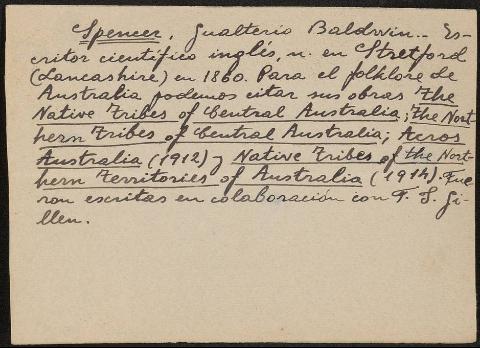 Spencer, Gualterio Baldwin.. Es-
critor científico inglés, n. en Stretford
(Lancashire) en 1860. Para el folklore de
Australia podemos citar sus obras The
Native Tribes of Central Australia; The Nort-
hern Tribes of Central Australia; Acros
Australia (1912) y Native Tribes of the Nort-
hern Territories of Australia (1914). Fue-
ron escritas en colaboración con F. S. Gi-
llen.